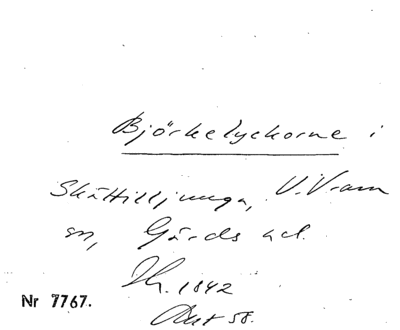 Björkelyckorne i
Skättilljunga, V. Vram
sn, Gärds hd.
1842
Nr 7767.
Akt 58.